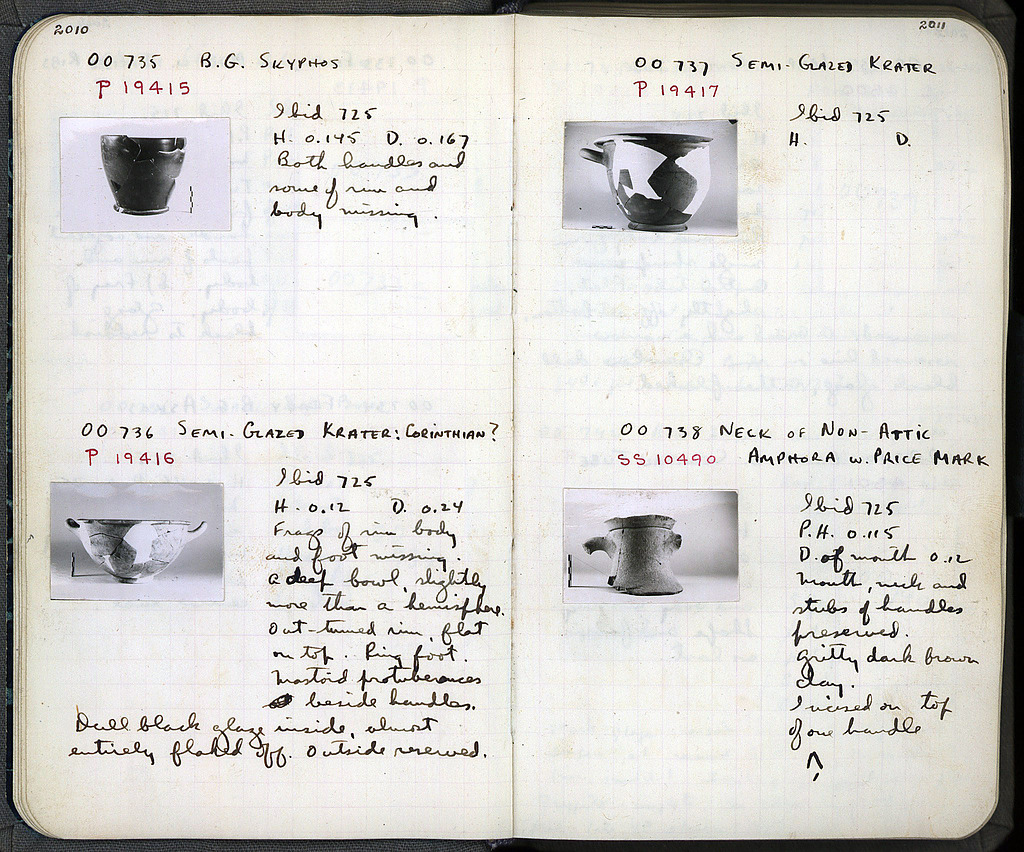 2010
OO 735 B.G. SKYPHOS
P 19415
Ibid 725
H. 0.145 D. 0.167
Both handles and
some of rim and
body missing.
OO 736 SEMI-GLAZED KRATER: CORINTHIAN?
P 19416
Ibid 725
H. 0.12 D. 0.24
Frags of rim body
and foot missing.
A deep bowl, slightly
more than a hemisphere.
Out-turned rim, flat
on top. Ring foot.
Mastoid protuberances
beside handles.
Dull black glaze inside, almost
entirely flaked off. Outside reserved.
2011
OO 737 SEMI-GLAZED KRATER
P 19417
Ibid 725
H. D.
OO 738 NECK OF NON-ATTIC
SS 10490 AMPHORA W. PRICE MARK
Ibid 725
P.H. 0.115
D. of mouth 0.12
Mouth, neck and
stubs of handles
preserved.
Gritty dark brown
clay.
Incised on top
of one handle